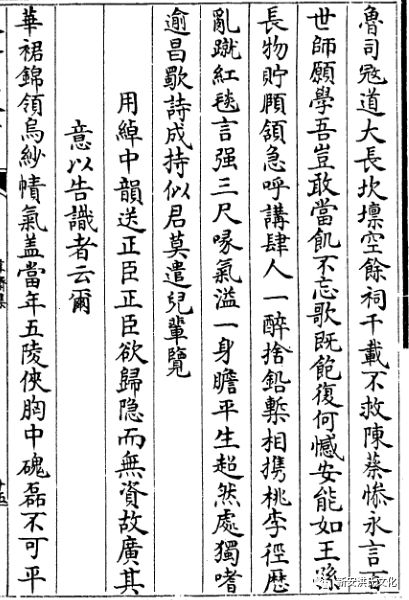 魯司寇道大長坎壈空餘祠千載不救陳蔡慘永言百
世師願學吾豈敢當飢不忘歌既飽復何憾安能如王孫
長物貯頷急呼講肆人一醉捨鉛槧相攜桃李徑歷
亂蹴紅毯言强三尺喙氣溢一身瞻平生超然處獨嗜
逾昌歜詩成持似君莫遣兒輩覽
用綽中韻送正臣正臣欲歸隐而無資故廣其
意以告識者云爾
華裾錦領烏紗幘氣蓋當年五陵俠胸中磈磊不可平
新安洪氏文化